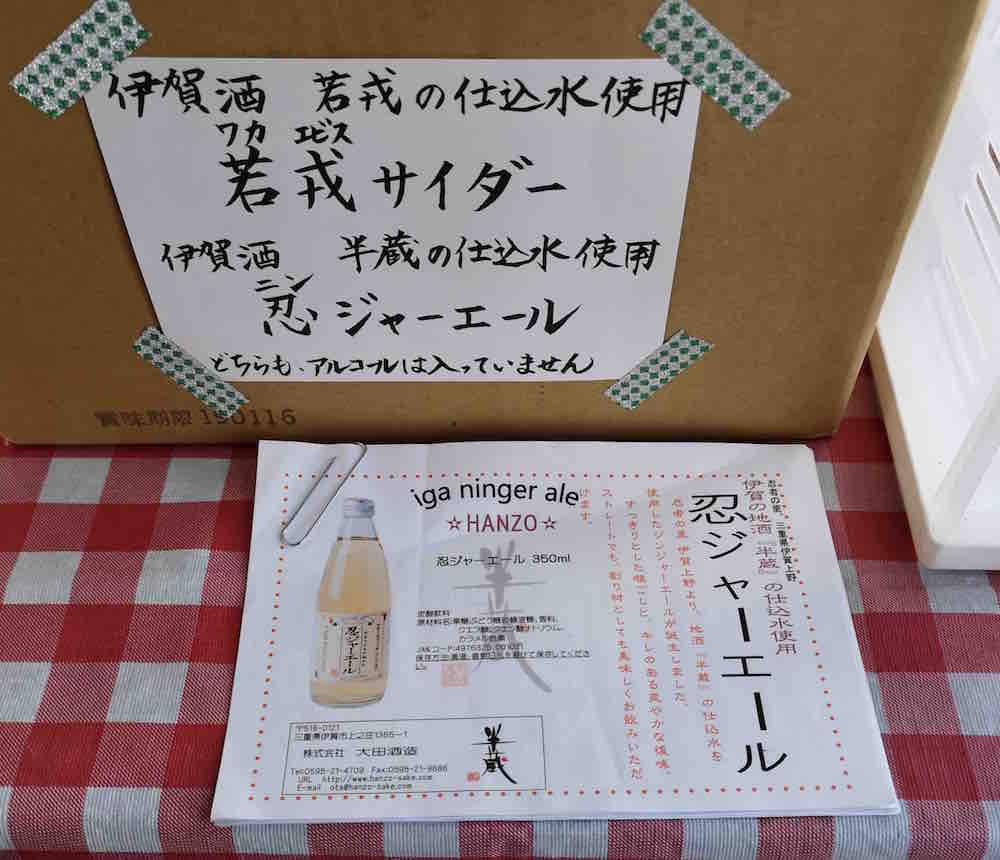 伊賀酒 若戎の仕込水使用
ワカ エビス
若戎サイダー
伊賀酒 半蔵の仕込水使用
ニン
忍ジャーエール
どちらも、アルコールは入っていません
賞味期限 190116
忍者の里、三重県伊賀上野
伊賀の地酒『半蔵』の仕込水使用
忍ジャーエール
忍者の里 伊賀上野より、地酒『半蔵』の仕込水を
使用したジンジャーエールが誕生しました。
すっきりとした喉ごしと、キレのある爽やかな後味。
ストレートでも、割り材としても美味しくお飲みいただ
けます。
iga ninger ale
☆HANZO☆
忍ジャーエール 350ml
半蔵
炭酸飲料
原材料名:果糖ぶどう糖液糖、香料、
クエン酸、クエン酸ナトリウム、
カラメル色素
JANコード:4976325
保存方法:高温、直射日光を避けて保存してくださ
い。
忍ジャーエール
〒518-0121
三重県伊賀市上之庄1365-1
株式会社 大田酒造
Tel:0595-21-4709 Fax:0595-21-9686
URL http://www.hanzo-sake.com
E-mail ota@hanzo-sake.com
半蔵